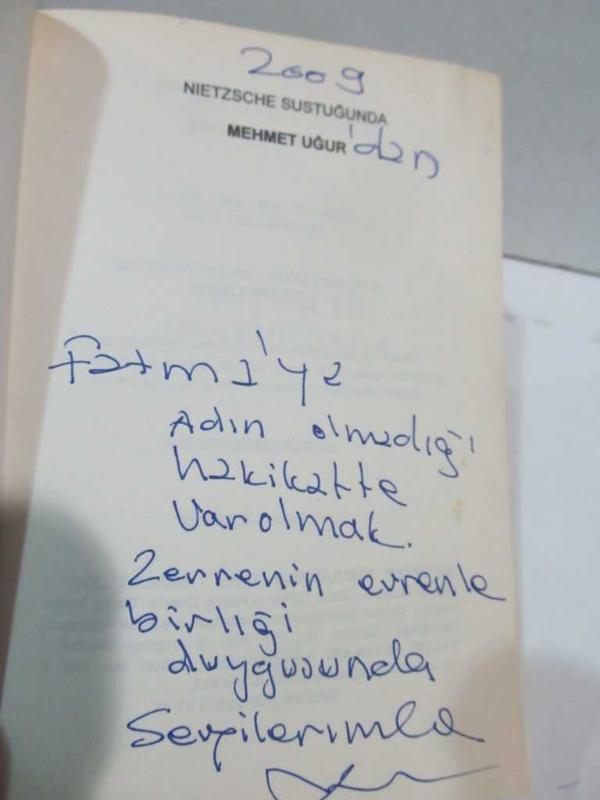 2009
NIETZSCHE SUSTUĞUNDA
MEHMET UĞUR'dan
Fatma'ya
Adın olmadığı
hakikatte
Varolmak.
Zerrenin evrenle
birliği
duygusunda
Sevgilerimle